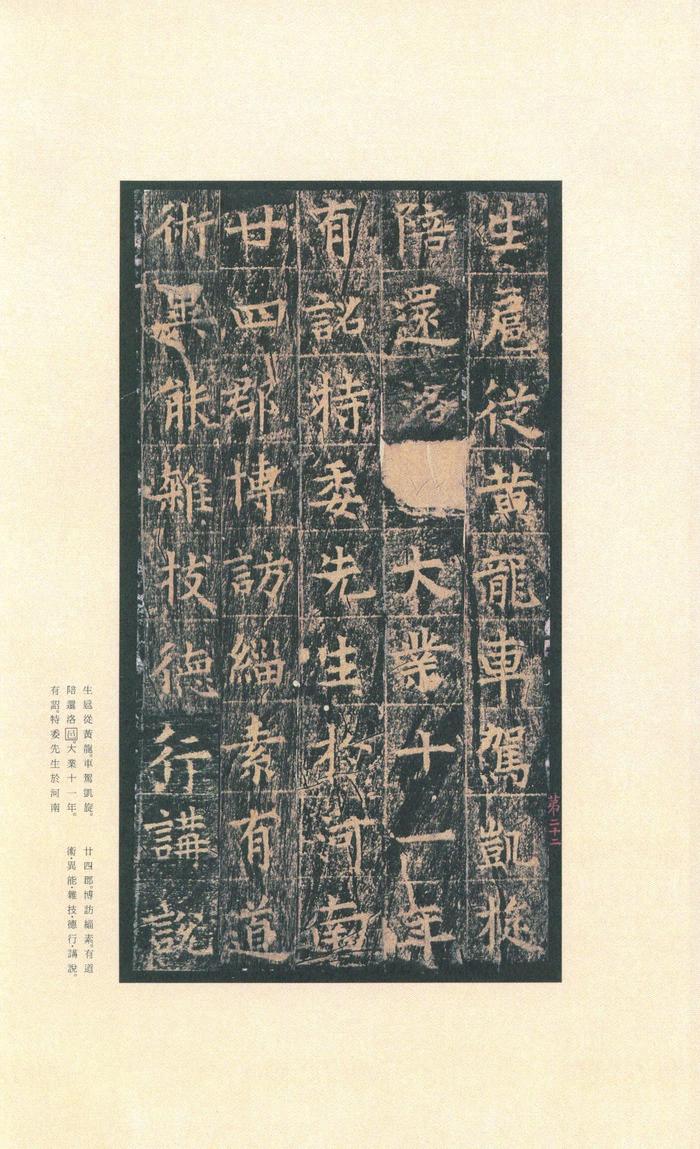 生扈從黃龍車駕凱旋
陪還洛大業十一年
有詔特委先生於河南
廿四郡博訪緇素有道
術異能雜技德行講說
第二十二
生扈從黃龍。車駕凱旋。
陪還洛邑。大業十一年。
有詔。特委先生於河南
廿四郡。博訪緇素。有道
術·異能·雜技·德行·講說。